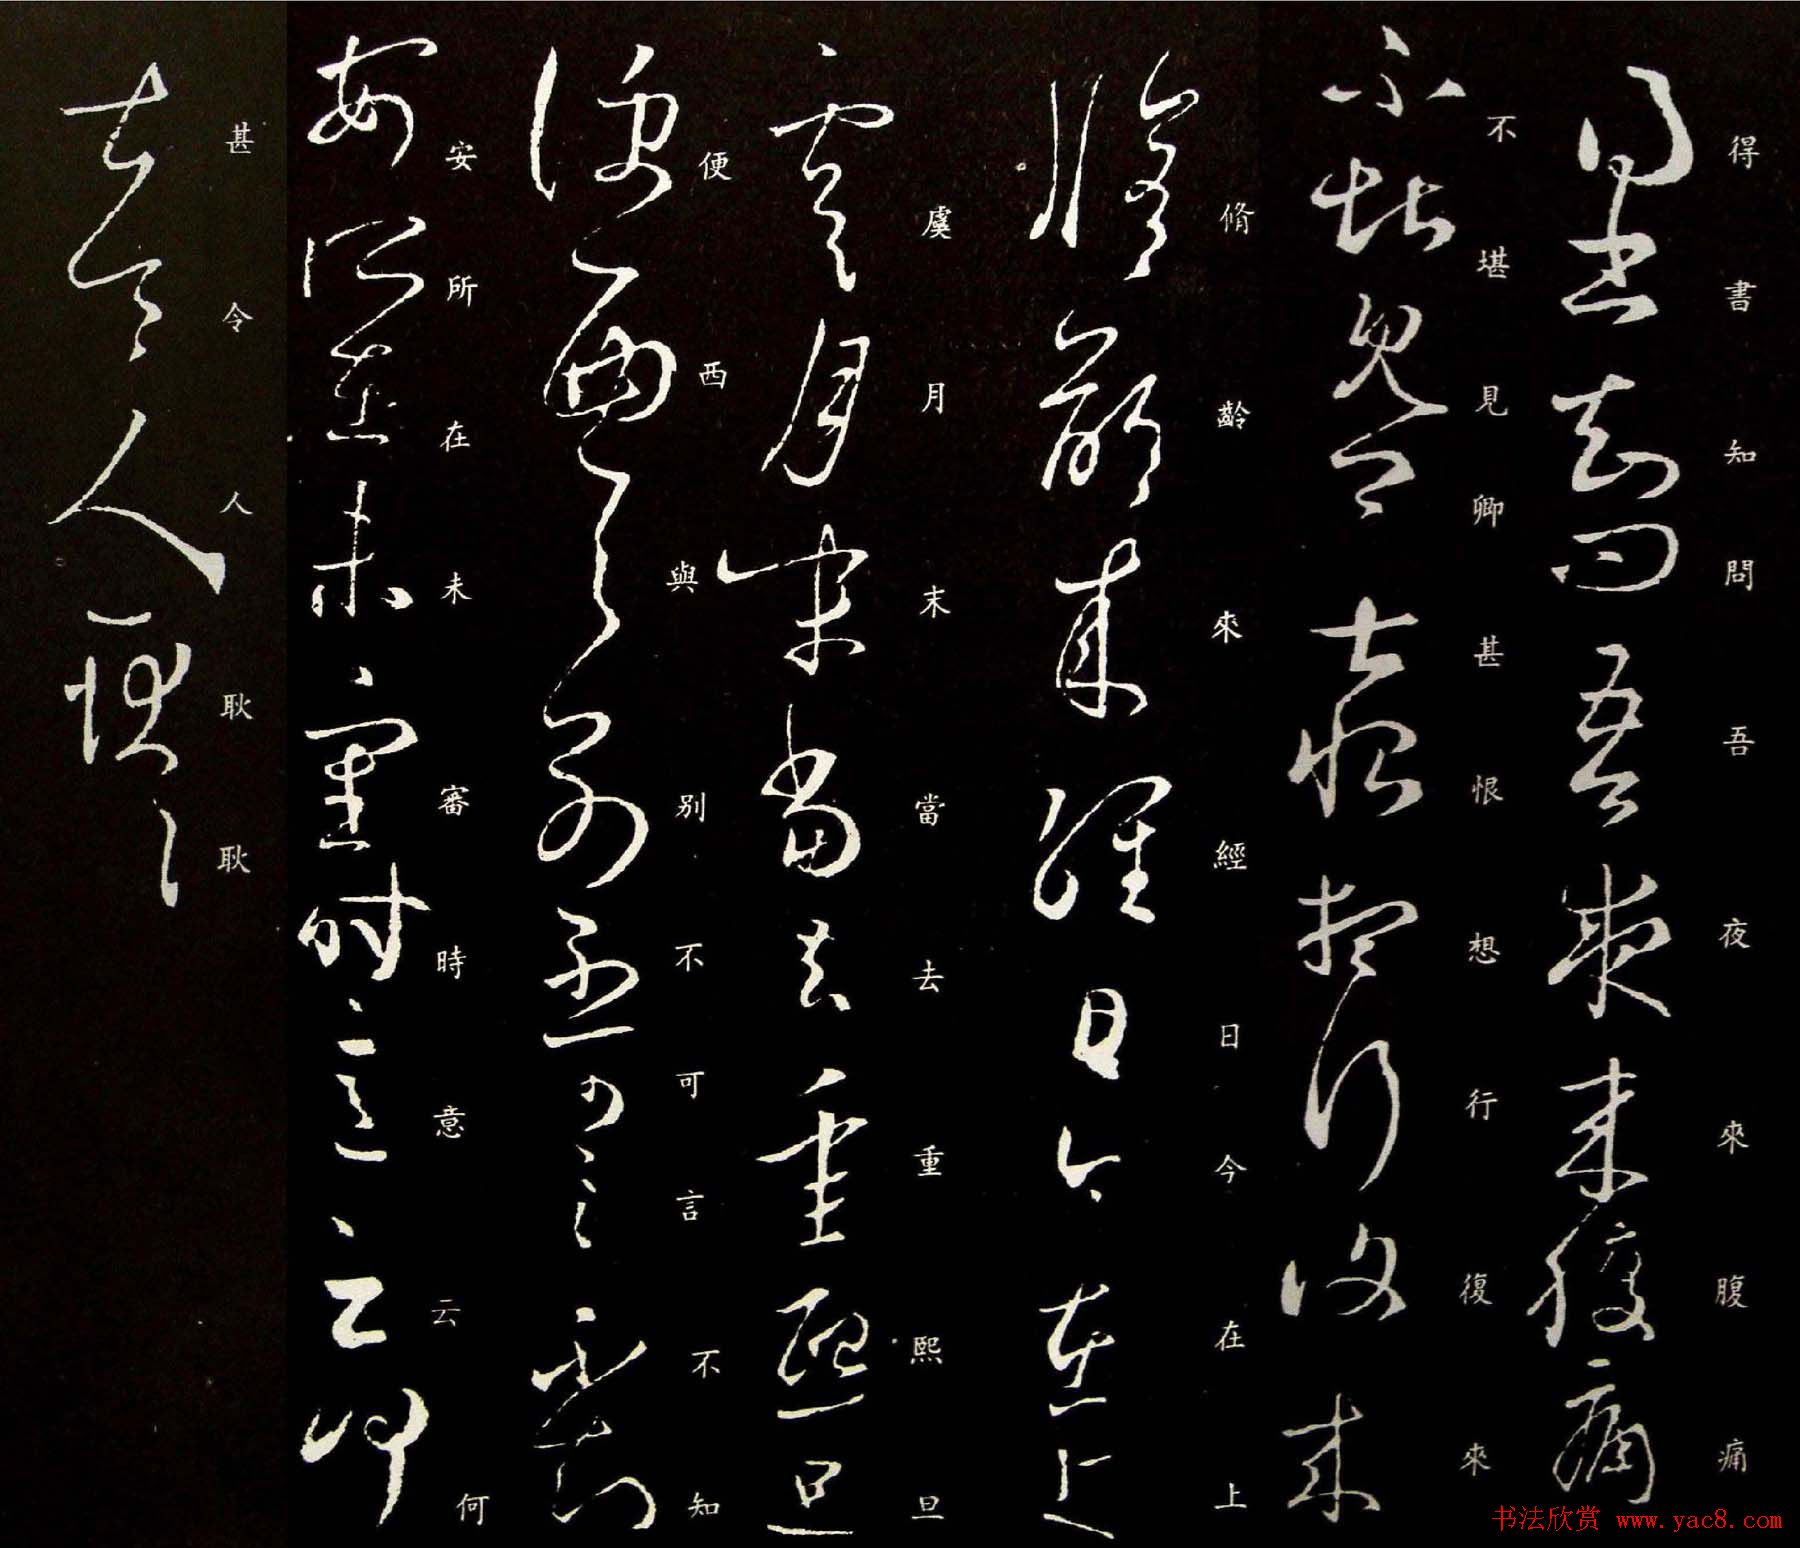 得書知問吾夜來腹痛
不堪見卿甚恨想行復來
脩齡來經日今在上
虞月末當去重熙旦
便西與别不可言不知
安所在未審時意云何
甚令人耿耿
书法欣赏 www.yac8.com